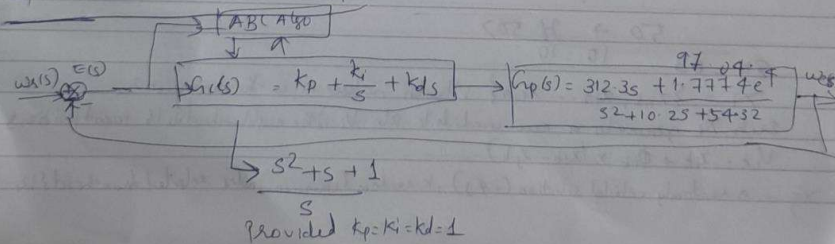 ABC Algo
97 04.
ωs(s) E(s) Gc(s) = Kp + Ki/s + Kds Gp(s) = 312.3s + 1.7774e^4 / s2+10.2s+54.32
s^2 + s + 1
s
provided Kp=Ki=Kd=1